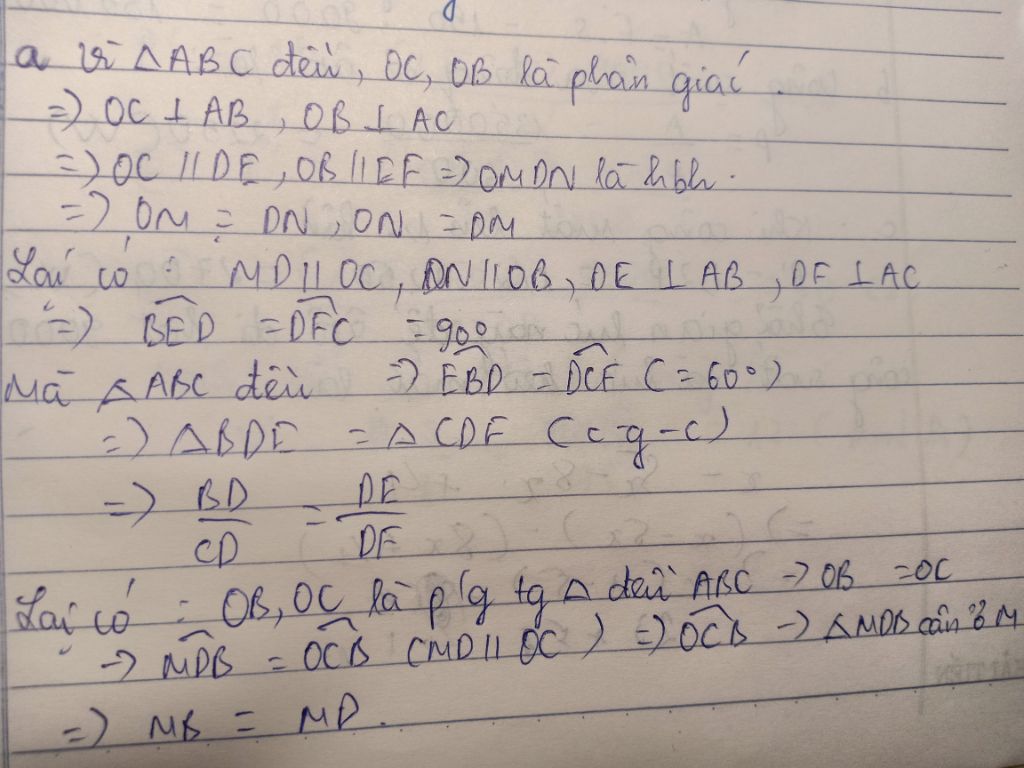 a vì △ABC đều, OC, OB là phân giác.
=> OC ⊥ AB, OB ⊥ AC
=> OC // DE, OB // EF => OMDN là hbh.
=> OM = DN, ON = DM
Lại có : MD // OC, DN // OB, DE ⊥ AB, DF ⊥ AC
=> \widehat{BED} = \widehat{DFC} = 90°
Mà △ABC đều => \widehat{EBD} = \widehat{DCF} (= 60°)
=> △BDE = △CDF (c-g-c)
=> \frac{BD}{CD} = \frac{DE}{DF}
Lại có : OB, OC là p/g tg △ đều ABC -> OB = OC
-> \widehat{MDB} = \widehat{OCB} (MD // OC) => \widehat{OCB} -> △MDB cân ở M
=> MB = MD.